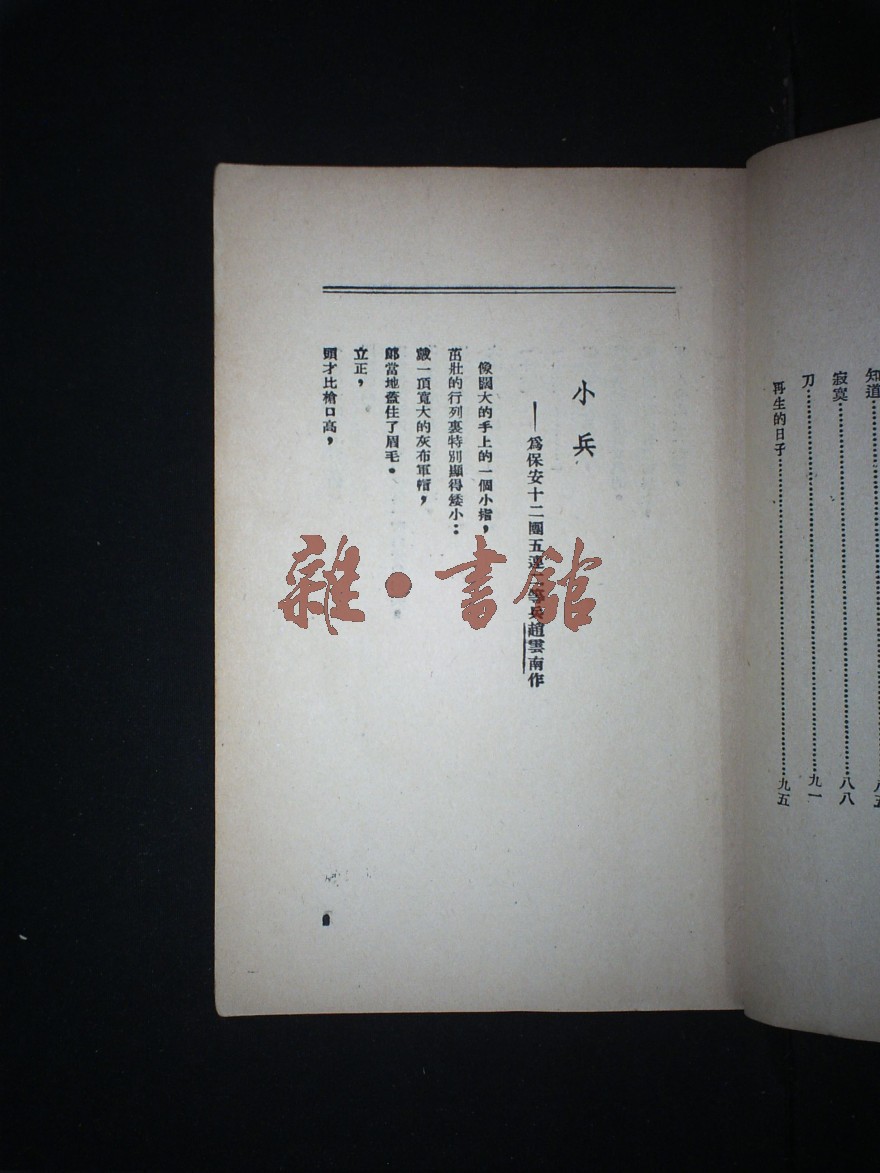 知道
寂寞……八八
刀……九一
再生的日子……九五
小兵
——爲保安十二團五連二等兵趙雲南作
像闊大的手上的一個小指，
茁壯的行列裏特別顯得矮小：
戴一頂寬大的灰布軍帽，
郎當地蓋住了眉毛。
立正，
頭才比槍口高，
雜·書館